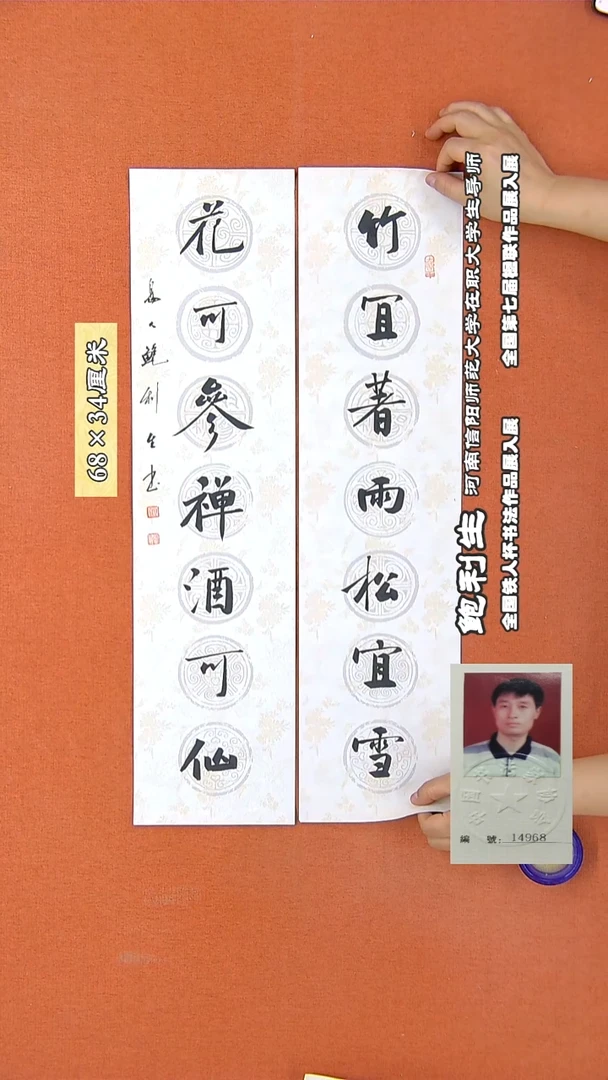 竹冝著雨松宜雪
花可參禅酒可仙
鲍利生书
68×34厘米
鲍利生 河南信阳师范大学在职大学生导师
全国铁人杯书法作品展入展 全国第七届楹联作品展入展
號：14968